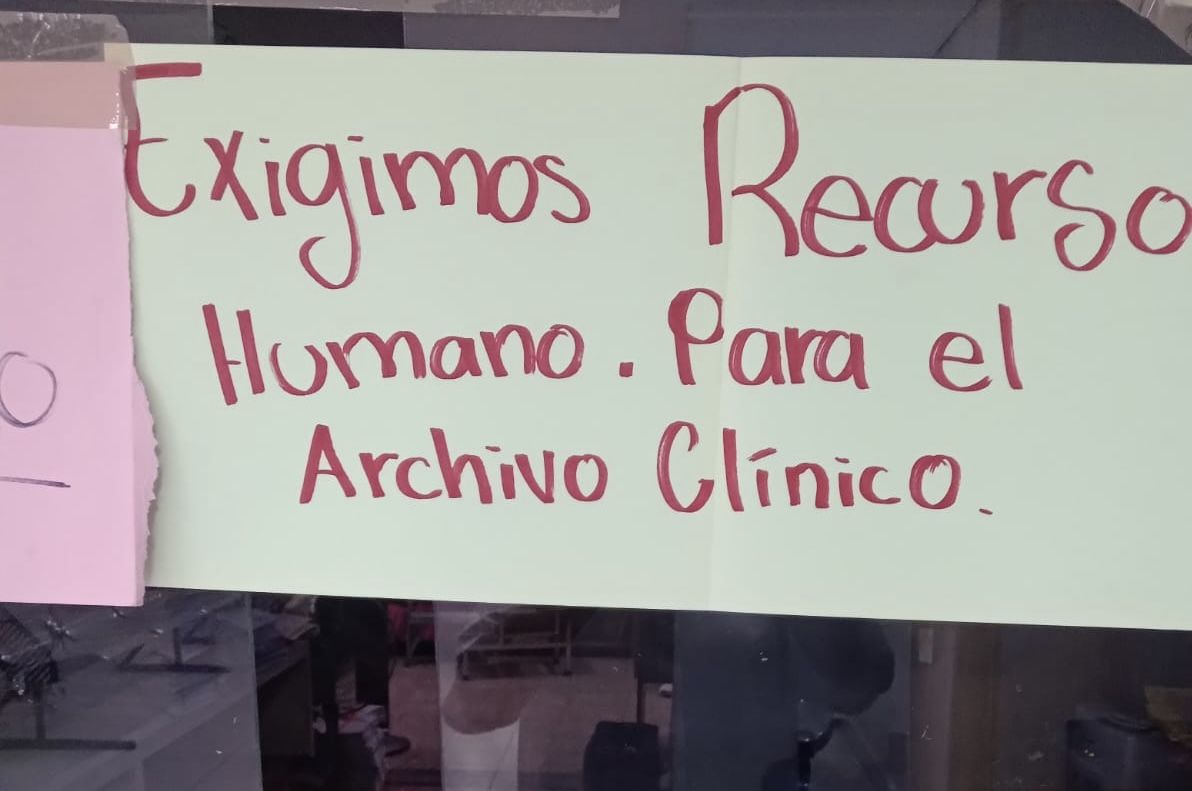 Exigimos Recurso
Humano. Para el
Archivo Clínico.
O